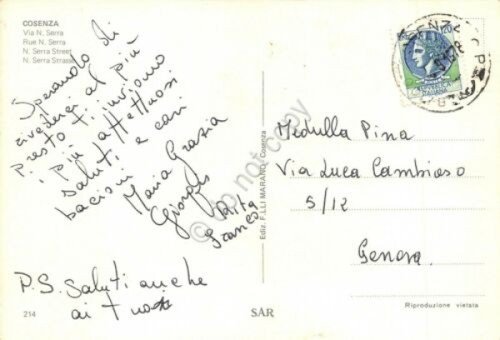 COSENZA
Via N. Serra
Rue N. Serra
N. Serra Street
N. Serra Strasse
Sperando di
rivederci al più
presto ti inviamo
i più affettuosi
saluti e cari
bacioni
Maria Grazia
Giorgio
Rita
Franco
P.S. Saluti anche
ai tuoi
214
SAR
Ediz. F.LLI MARANO, Cosenza
do not copy
Medulla Pina
Via Luca Cambiaso
5/12
Genova
Riproduzione vietata